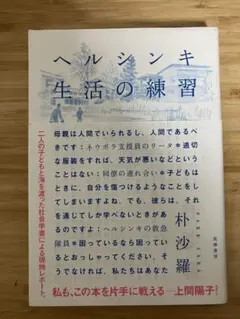 ヘルシンキ
生活の練習
母親は人間でいられるし、人間であるべ
きです:ネウボラ支援員のリータ*適切
な服装をすれば、天気が悪いなどという
ことはない:同僚の連れ合い*子どもは
ときに、自分を傷つけるようなことをし
てしまいますよね。でも、彼らは、それ
を通じてしか学べないときがあるので
すよ:ヘルシンキの救急
隊員*困っているなら困ってい
るとおっしゃってください。そ
うでなければ、私たちはあなた
朴沙羅
筑摩書房
二人の子どもと海を渡った社会学者による現地レポート。
私も、この本を片手に戦える――上間陽子!